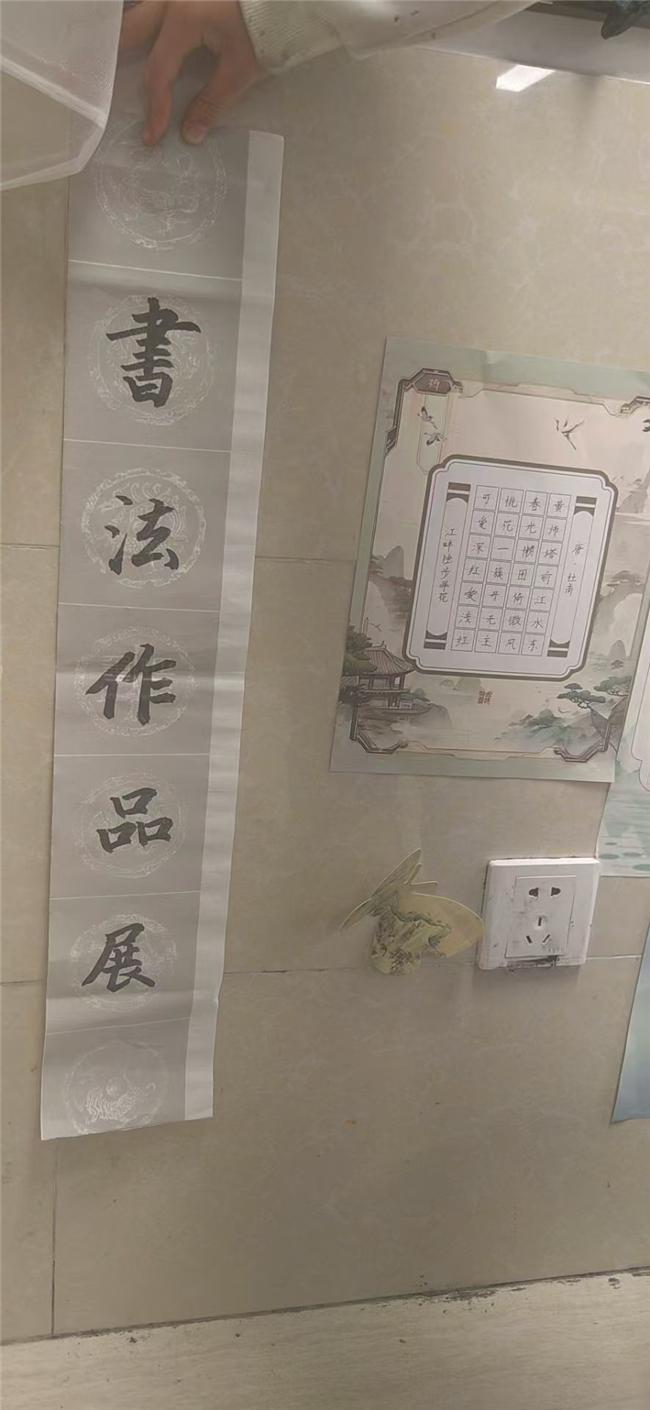 書法作品展
唐·杜甫
黄师塔前江水东
春光懒困倚微风
桃花一簇开无主
可爱深红爱浅红
江畔独步寻花